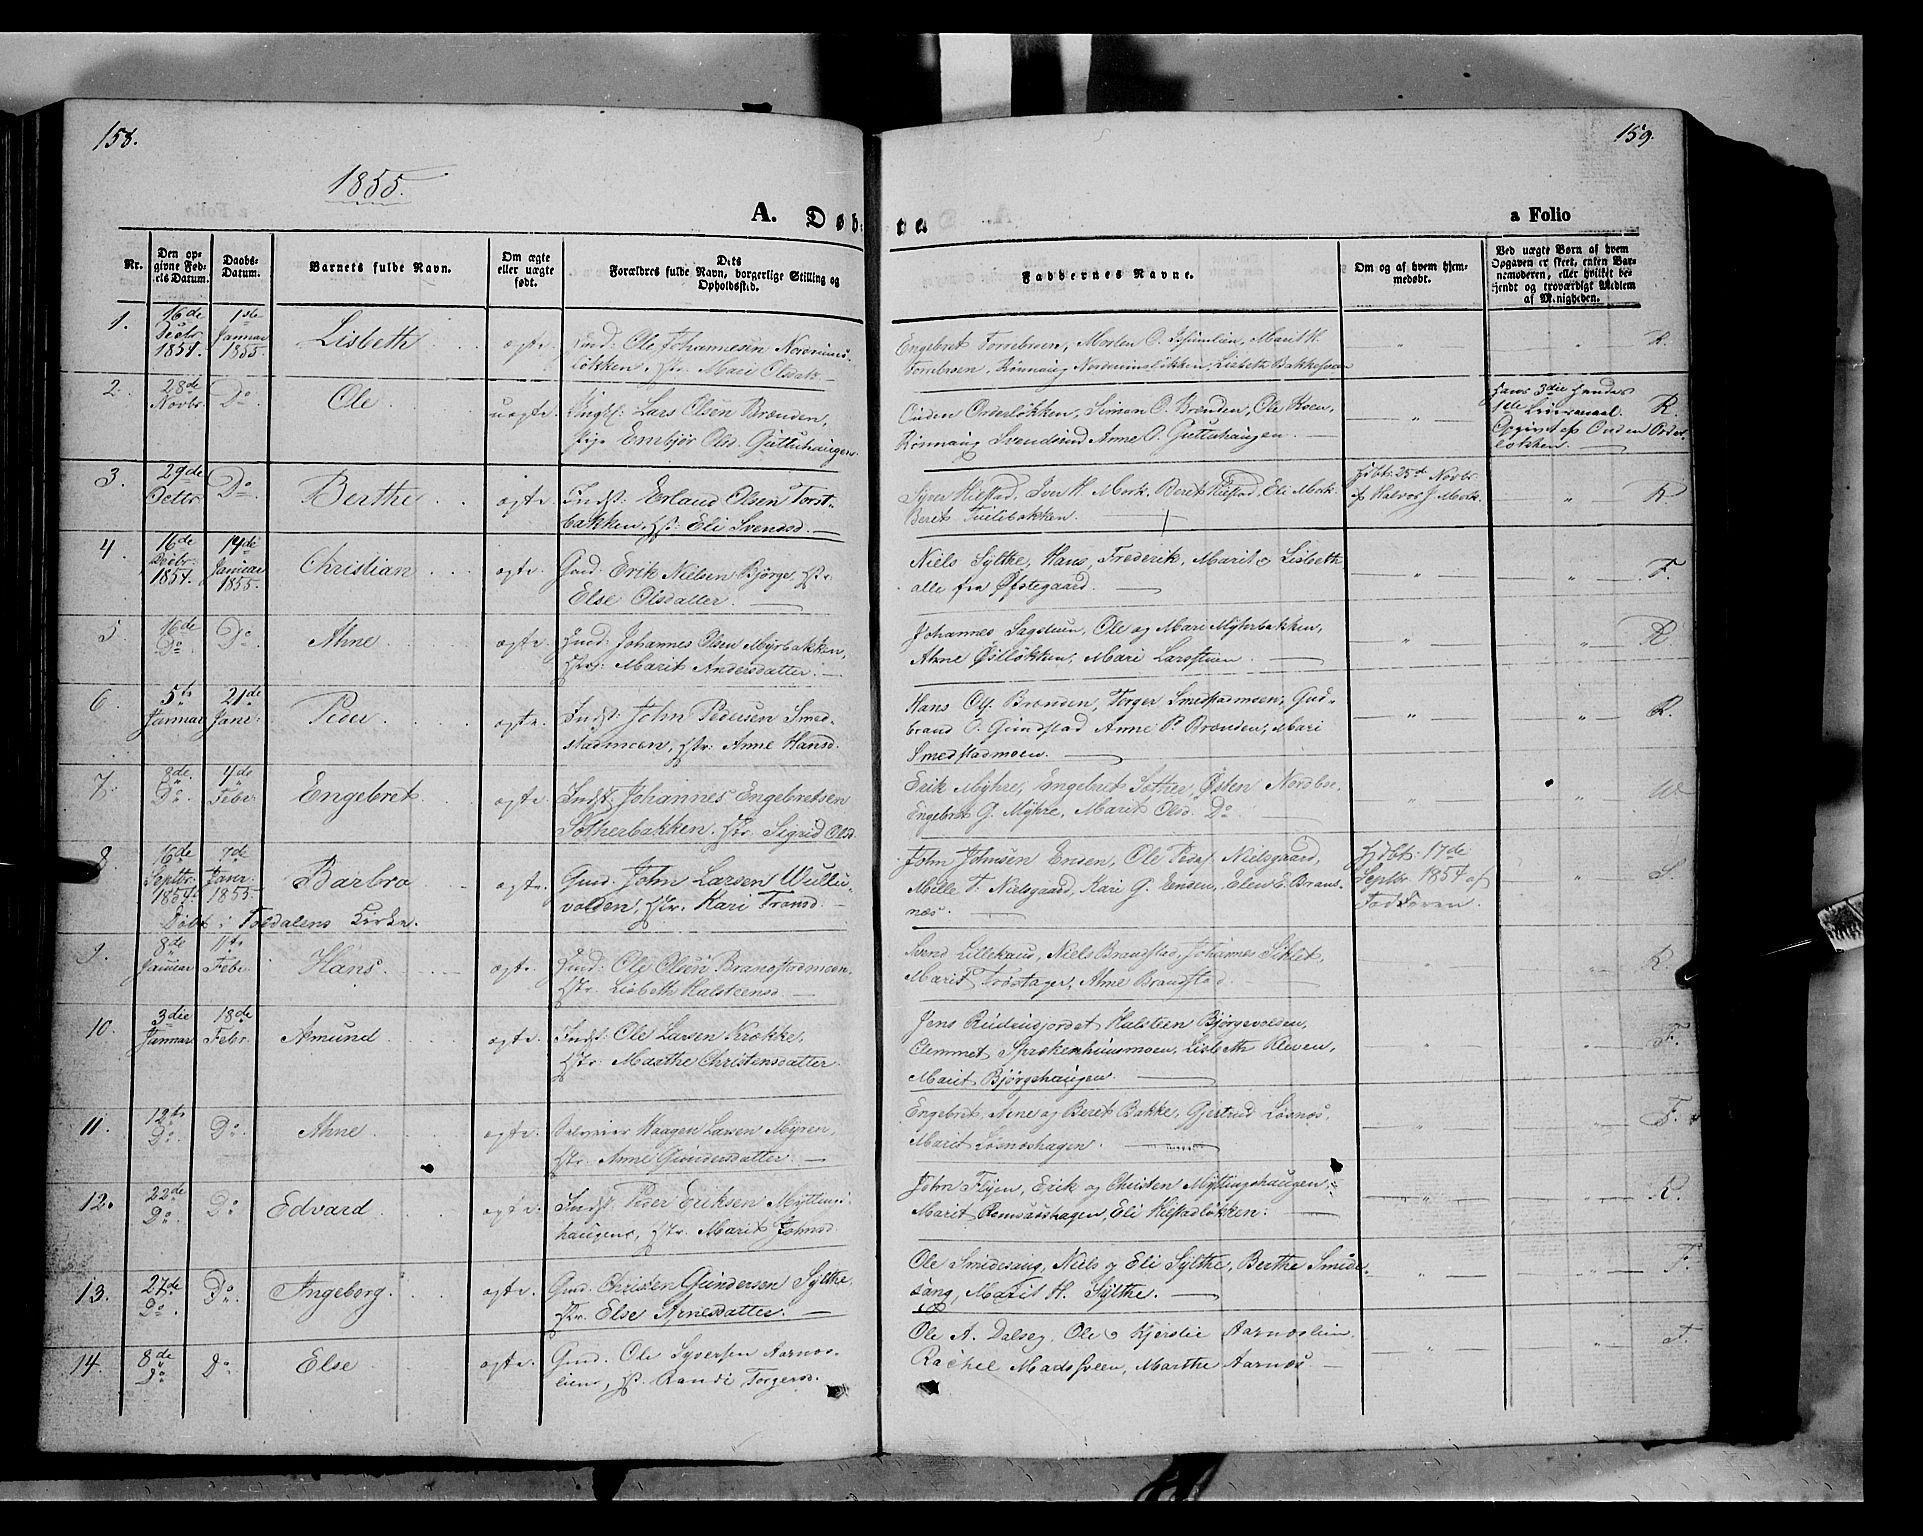 158.
1855.
A. Døb-
Nr.
Den op-
givne Fød-
sels Datum.
Daabs-
Datum.
Barnets fulde Navn.
Om ægte
eller uægte
født.
Dets
Forældres fulde Navn, borgerlige Stilling og
Opholdssted.
1.
16de
Decbr.
1854.
1ste
Januar
1855.
Lisbeth
ægte
Ole Johannesen Nordrums-
løkken, Mari Olsdatr
2.
28de
Novbr.
Do.
Ole
uægte
Lars Olsen Brænden,
Pige Embjør Olsd. Guttuhaugen.
3.
29de
Do.
Berthe
ægte
Indst. Erland Olsen Torst-
bakken, Hst: Eli Svensd.
4.
16de
Decbr.
1854.
14de
Januar
1855.
Christian
ægte
Gmd. Erik Nielsen Bjørge, Hstr.
Else Olsdatter.
5.
16de
Do.
Do.
Ahne
ægte
Johannes Olsen Myrbakken,
Marit Andersdatter.
6.
5te
Januar
21de
Janr:
Peder
ægte
Indst: John Pedersen Smed-
stadmoen, Hstr: Anne Hansd.
7.
8de.
Do.
4de
Febr
Engebret
ægte
Indst: Johannes Engebretsen
Sotherbakken. Hstr Sigrid Olsd.
8.
16de
Septbr.
1854.
7de
Janr.
1855.
Barbro
ægte
Gmd. John Larsen Wullu-
volden, Hstr. Kari Tronsd.
Døbt i Foldalens Kirke.
9.
8de
Januar
11te
Febr.
Hans.
ægte.
Ole Olsen Brandstadmoen,
Hstr. Lisbeth Halsteensd.
10.
3die
Januar
18de
Febr.
Amund
ægte.
Indst: Ole Larsen Krække,
Hstr Maathe Christensdatter.
11.
12te
Do.
Do.
Ahne
ægte.
Haagen Larsen Myren,
Hstr. Anne Gundersdatter.
12.
22de
Do.
Do
Edvard
ægte.
Indst: Peder Eriksen Myttings-
haugen, Hstr. Marit Johnsd.
13.
27de
Do.
Do.
Ingeborg.
ægte.
Gmd. Christen Gundersen Sylthe,
Hstr. Else Arnesdatter.
14.
8de
Do.
Do.
Else
ægte.
Gmd. Ole Syversen Aarnæs-
lien, Hst. Randi Torgersd.
159.
te.
a Folio
Faddernes Navne.
Om og af hvem hjem-
medøbt.
Ved uægte Børn af hvem
Opgaven er skeet, enten Bar-
nemoderen, eller hvilket be-
kjendt og troværdigt Medlem
af Menigheden.
Engebret Torrebroen, Morten O. Marit H.
Torrebroen, Rønnaug Nordrumsløkken, Lisbeth
R.
Ouden Orderløkken, Simon O. Brænden, Ole
Rønnaug Svendsrud Anne O. Guttuhaugen.
Hans 3die hendes
1ste Leiermaal.
Opgivet af Ouden Order-
løkken.
R.
Syver Kielstad, Iver H. Mork, Beret Kielstad, Eli Mork.
Beret
Hjdbt: 25d Novbr.
af Halvor J. Mork.
R
Niels Sylthe, Hans, Frederik, Marit og Lisbeth
alle fra Øfstegaard.
F.
Johannes Sagstuen, Ole og Mari Myhrbakken,
Ahne Østløkken, Mari Larsstuen
R.
Hans Brænden, Torger Smedstadmoen, Gud-
brand O. Grindstad Anne P. Brænden, Mari
Smedstadmoen.
R.
Erik Myhre, Engebret Sother, Østen Nordbø
Engebret G. Myhre, Marit Olsd. Do
W
John Johnsen Enden, Ole Peders. Nielsgaard,
Mille T. Nielsgaard, Kari G. Enden, Elen E. Bran-
næs.
Hjdbt: 17de
Septbr. 1854 af
Faderen.
S.
Svend Lillekrud, Niels Brandstad, Johannes
Marit Trøstager, Ahne Brandstad.
R.
Jens Rudiusjordet Halsteen Bjørgevolden,
Clemmet Sprækenhuusmoen, Lisbeth Kleven,
Marit Bjørgshaugen.
F.
Engebret, Arne og Beret Bakke, Gjertrud Losnæs,
Marit Losnæshagen.
F.
John Flyen, Erik og Christen Myttingshaugen
Marit Romsaashagen, Eli Kielstadløkken.
R.
Ole Smidesang, Niels og Eli Sylthe, Berthe Smide-
sang, Marit H. Sylthe.
F.
Ole A. Dalseg, Ole og Kjerstie Aarnæslien.
Rachel Madssveen, Marthe Aarnæs
F.